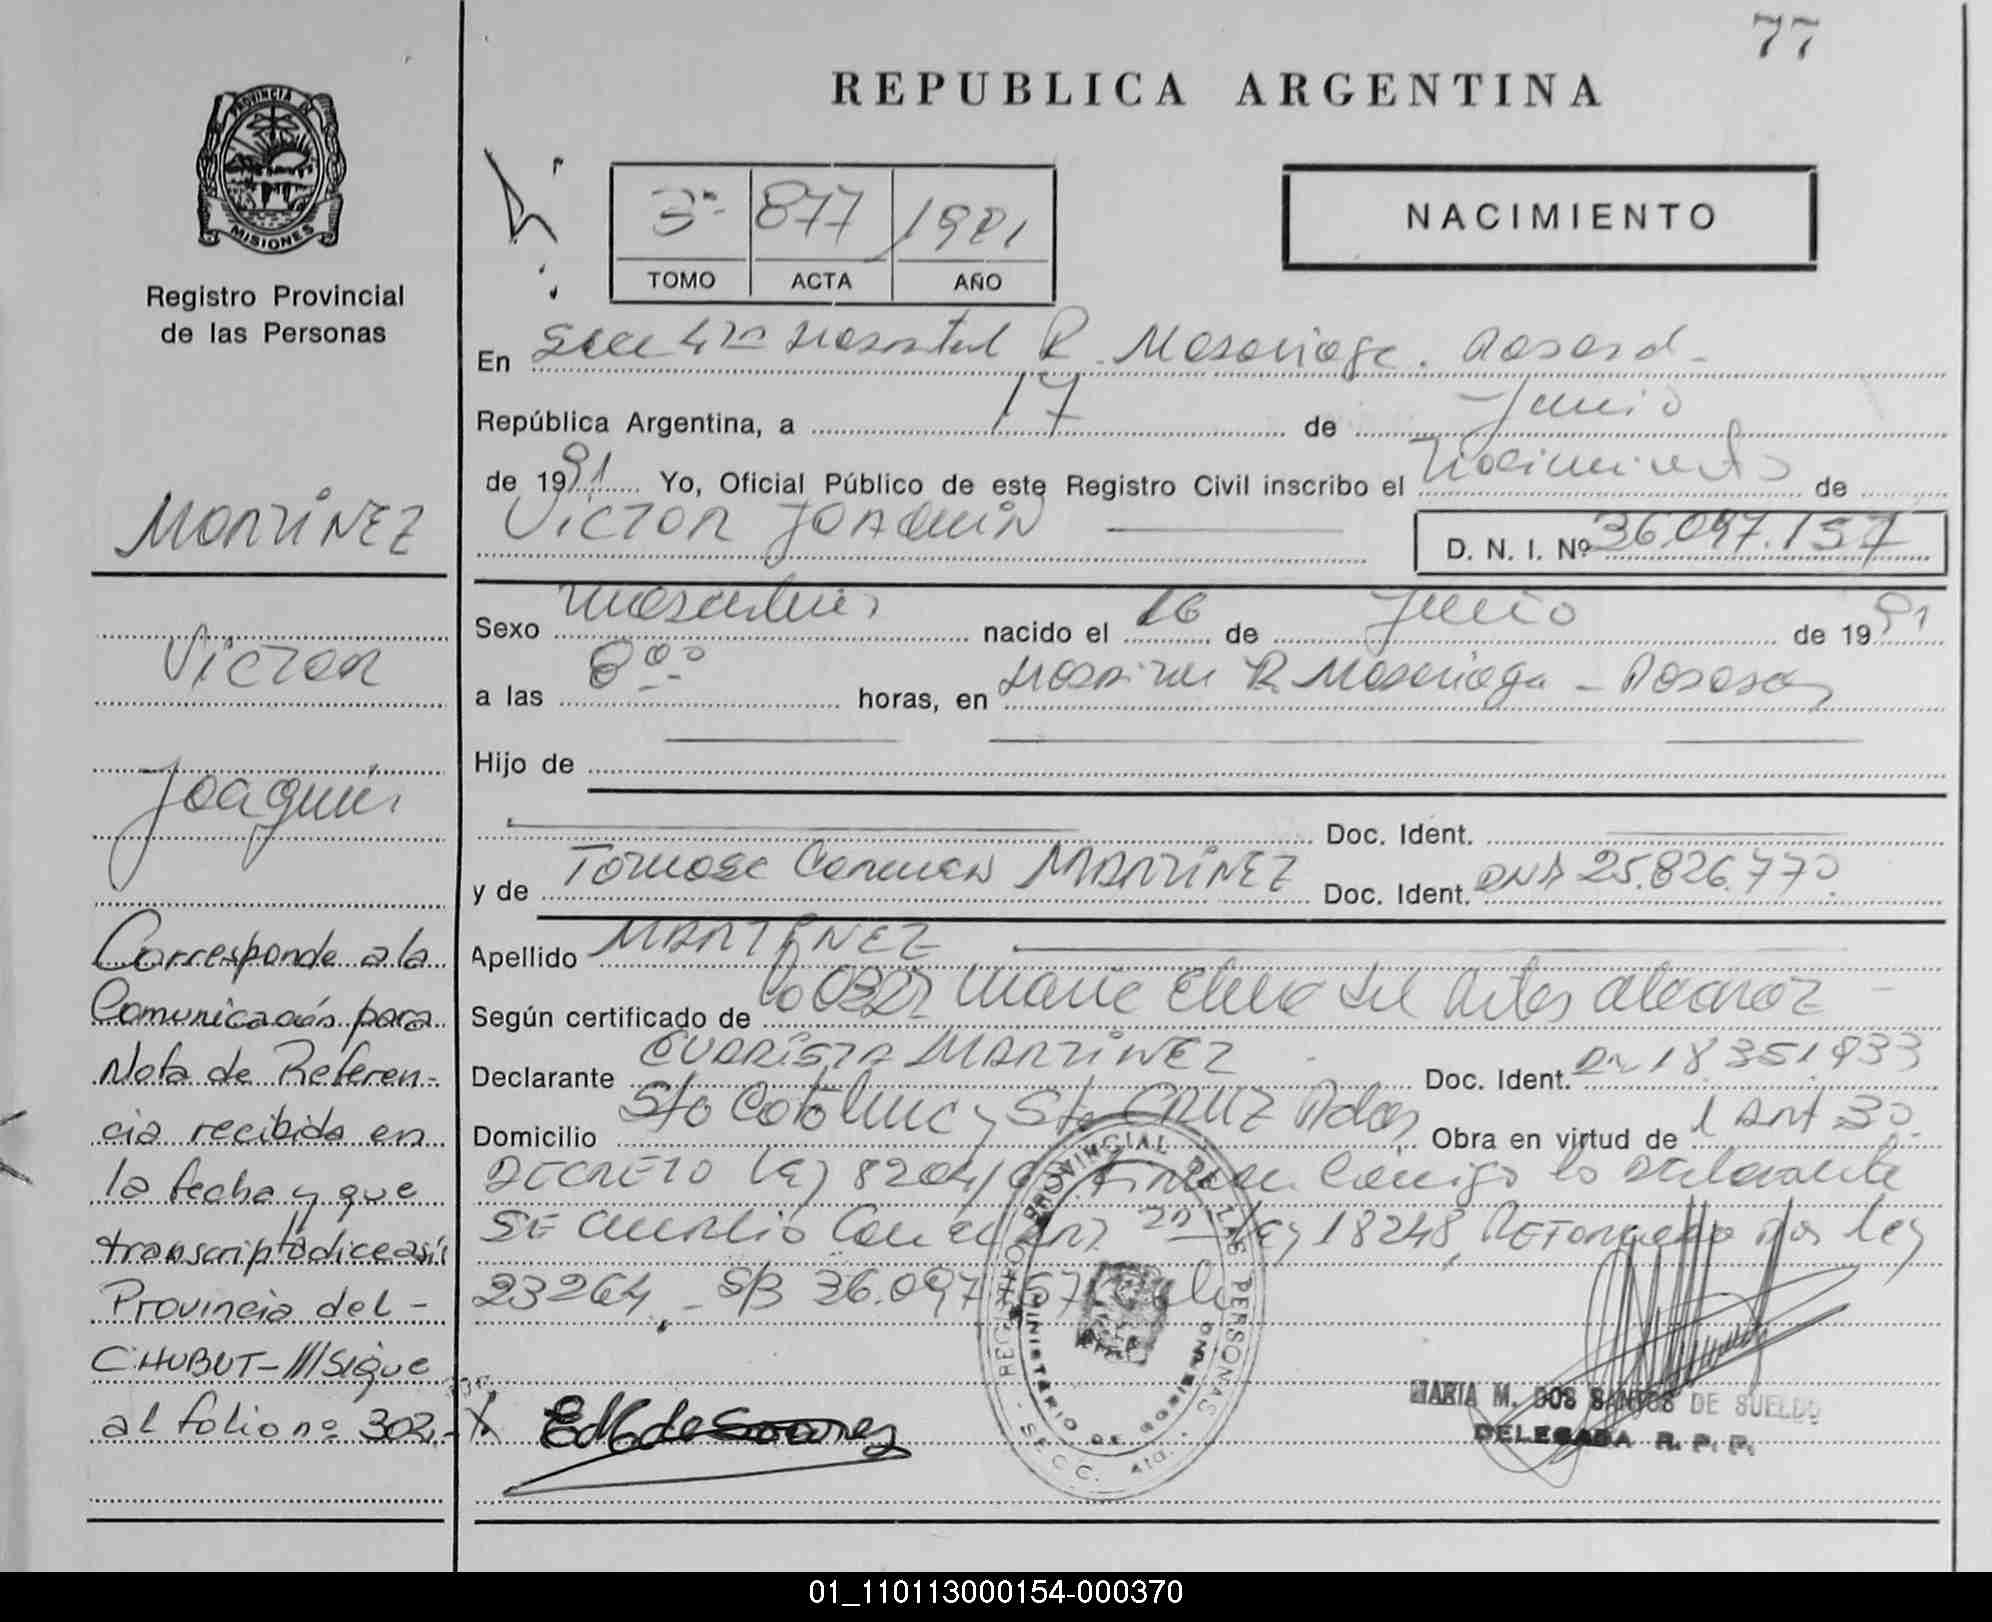 77
REPUBLICA ARGENTINA
PROVINCIA DE
MISIONES
Registro Provincial
de las Personas
3º 877 1991
TOMO ACTA AÑO
NACIMIENTO
En Secc 4ta Hospital R. Madariaga. Posadas
República Argentina, a 17 de Junio
de 1991 Yo, Oficial Público de este Registro Civil inscribo el Nacimiento de
VICTOR JOAQUIN
D. N. I. Nº 36.097.157
Sexo Masculino nacido el 16 de Junio de 1991
a las 8 00 horas, en Hospital R. Madariaga - Posadas
Hijo de
Doc. Ident.
y de Tomasa Carmen MARTINEZ Doc. Ident. DNI 25.826.770
Apellido MARTINEZ
Según certificado de
Declarante EVARISTA MARTINEZ Doc. Ident. 18.351.933
Domicilio Sta Catalina y Sta CRUZ Pdas Obra en virtud de Art 30
DECRETO Ley 8204/ Firman Conmigo la Declarante
SE CUMPLIO Con el Art 2º Ley 18248, REFORMADO Por Ley
23264 - S/B 36.097.157
MARTINEZ
Victor
Joaquin
Corresponde a la
Comunicación para
Nota de Referen-
cia recibida en
la fecha y que
transcripta dice así:
Provincia del -
CHUBUT- /// Sigue
al folio nº 302.-
REGISTRO PROVINCIAL DE LAS PERSONAS
MINISTERIO DE GOBIERNO
SECC. 4ta.
MARIA M. DOS SANTOS DE SUELDO
DELEGADA R. P. P.
01_110113000154-000370